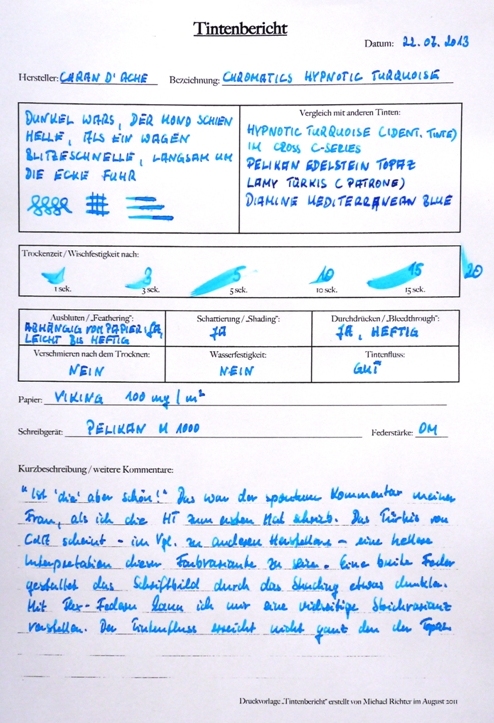 Tintenbericht
Datum: 22.07.2013
Hersteller: CARAN D'ACHE Bezeichnung: CHROMATICS HYPNOTIC TURQUOISE
DUNKEL WARS, DER MOND SCHIEN
HELLE, ALS EIN WAGEN
BLITZESCHNELLE, LANGSAM UM
DIE ECKE FUHR
Vergleich mit anderen Tinten:
HYPNOTIC TURQUOISE (IDENT. TINTE)
IM CROSS C-SERIES
PELIKAN EDELSTEIN TOPAZ
LAMY TÜRKIS (PATRONE)
DIAMINE MEDITERRANEAN BLUE
Trockenzeit / Wischfestigkeit nach:
1 3 5 10 15 20
1 sek. 3 sek. 5 sek. 10 sek. 15 sek.
Ausbluten / „Feathering": Schattierung / „Shading": Durchdrücken / „Bleedthrough":
ABHÄNGIG VOM PAPIER: JA, JA JA, HEFTIG
LEICHT BIS HEFTIG
Verschmieren nach dem Trocknen: Wasserfestigkeit: Tintenfluss:
NEIN NEIN GUT
Papier: VIKING 100 mg/m²
Schreibgerät: PELIKAN M 1000 Federstärke: OM
Kurzbeschreibung / weitere Kommentare:
"Ist 'die' aber schön!" Das war der spontane Kommentar meiner
Frau, als ich die HT zum ersten Mal schrieb. Das Türkis von
CdA scheint - im Vgl. zu anderen Herstellern - eine hellere
Interpretation dieser Farbvariante zu sein. Eine breite Feder
gestaltet das Schriftbild durch das Shading etwas dunkler.
Mit Flex-Federn kann ich mir eine vielseitige Strichvarianz
vorstellen. Der Tintenfluss erreicht nicht ganz den der Topaz
Druckvorlage „Tintenbericht" erstellt von Michael Richter im August 2011